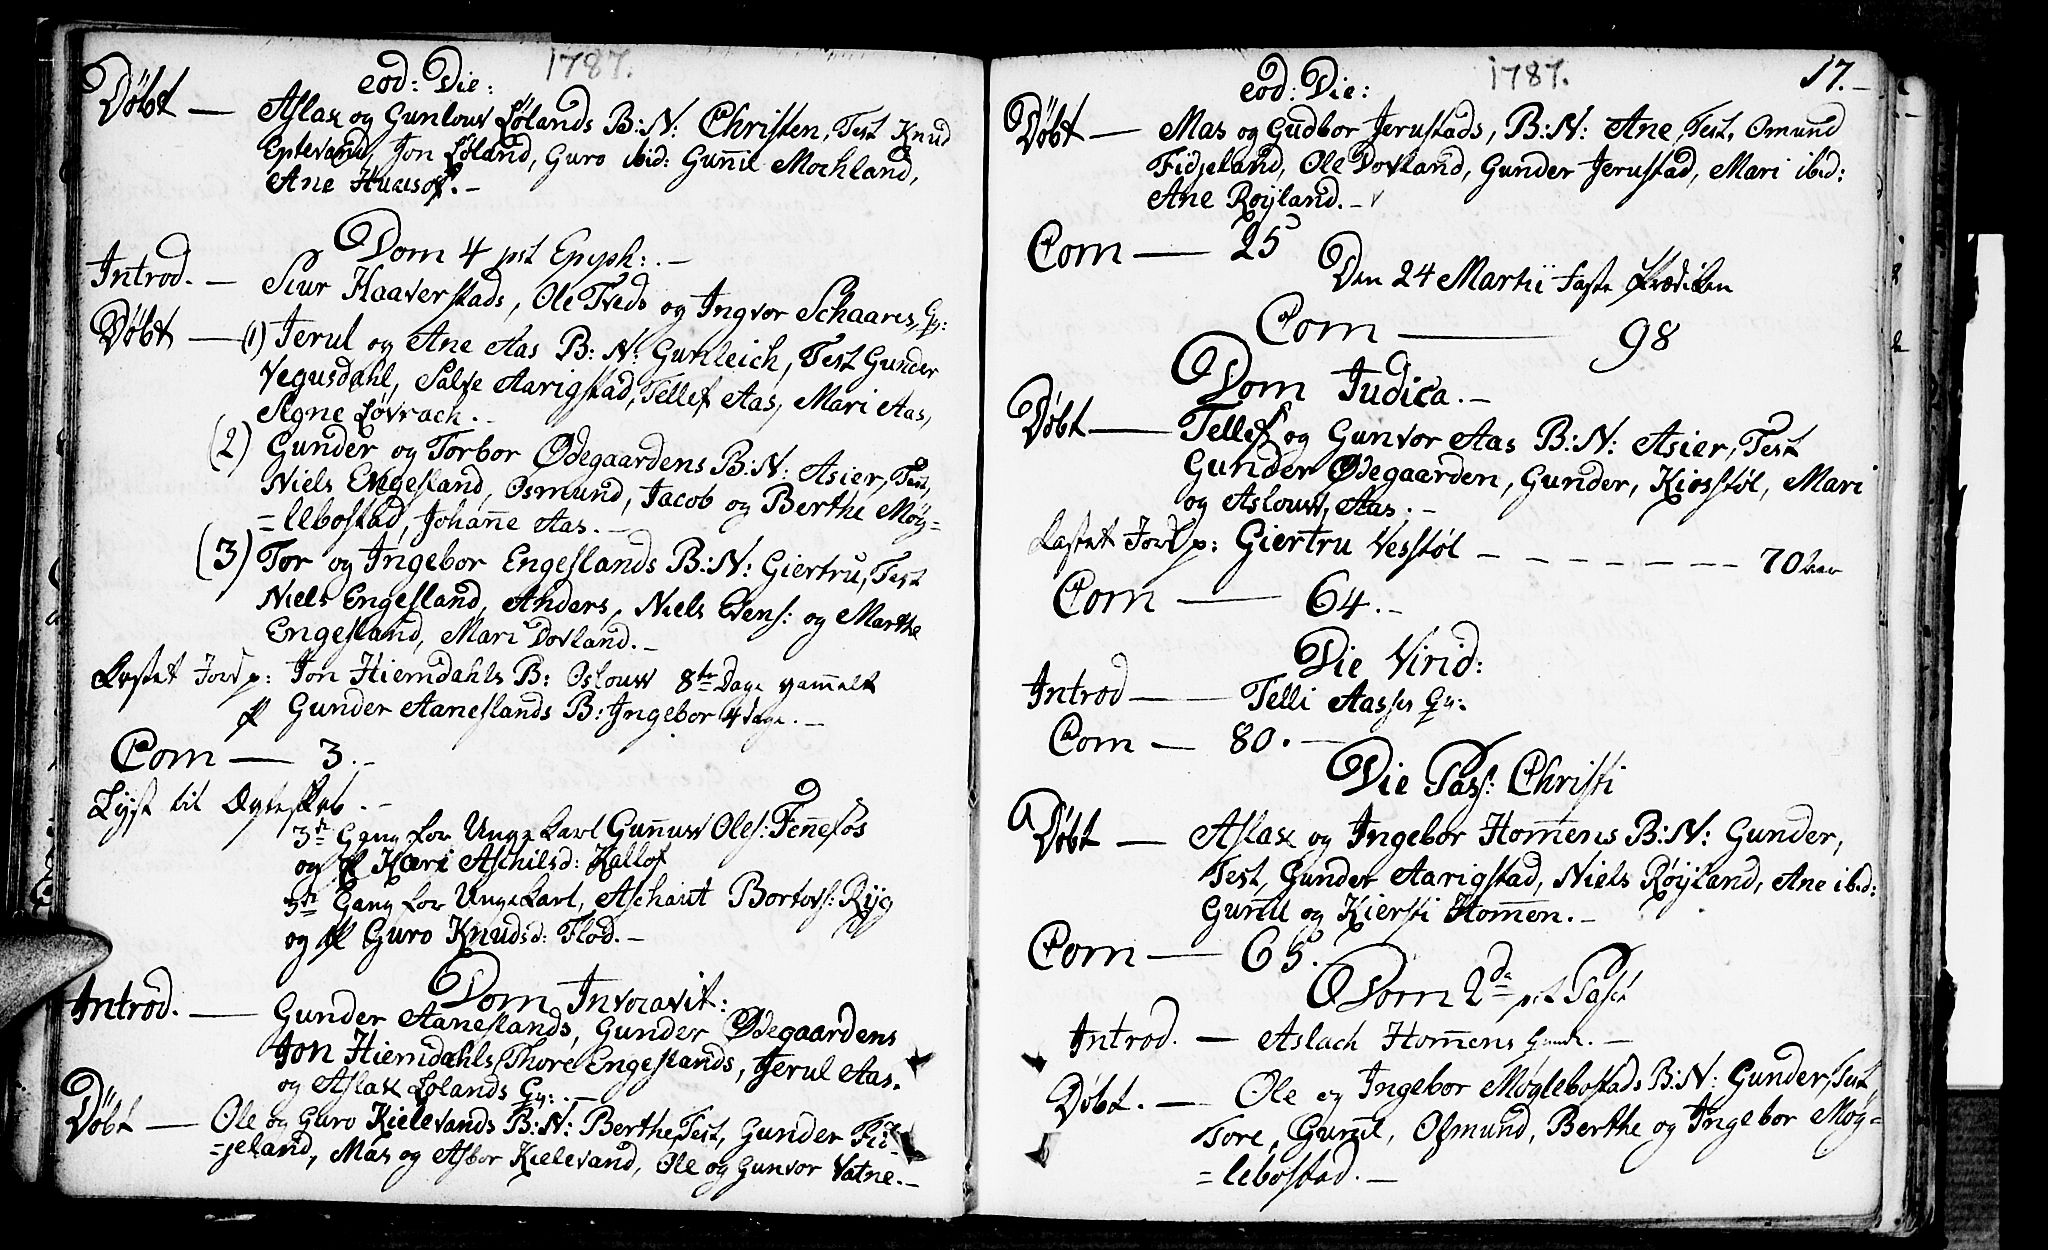 1787.
eod: Die:
Døbt — Aslax og Gunlouv Lølands B:N: Christen, Test Knud
Eptevand, Jon Løland, Guro ibid: Guñil Mochland,
Ane
Dom 4 pst Epiph: . —
Introd. — Siur Haaverstads, Ole Tveds og Ingvor Schaares, Qv:
Døbt — (1) Jerul og Ane Aas B:N: Gunleich, Test Gunder
Vegusdahl, Salve Aarigstad, Tellef Aas, Mari Aas,
Segne Løvrach. —
(2) Gunder og Torbor Ødegaardens B:N: Asier, Test,
Niels Engesland, Osmund, Jacob og Berthe Møg=
=lebostad, Johañe Aas. —
(3) Tor og Ingebor Engeslands B:N: Giertru, Test
Niels Engesland, Anders, Niels Evens: og Marthe
Engesland, Mari Dovland. —
Kastet Jord p: Jon Hiemdahls B: Oslouv 8te Dage gam̃elt
p Gunder Aaneslands B: Ingebor 4 dage. —
Com — 3. —
Lyst til Ægteskab. —
3de Gang for Unge Karl Guñuv Oles: Feñefos
og p Kari Aschilsd: Kallof
3de Gang for Unge Karl, Aschaut Bortovs: Ryg
og p Guro Knudsd: Flod. —
Dom Invocavit:
Introd. — Gunder Aaneslands, Gunder Ødegaardens
Jon Hiemdahls, Thore Engeslands, Jerul Aas.
og Aslax Lølands Qv: . —
Døbt — Ole og Guro Kielevands B:N: Berthe, Test, Gunder Fid=
=jeland, Mas og Asbor Kielevand, Ole og Gunvor Vatne. —
1787.
17. —
eod: Die:
Døbt — Mas og Gudbor Jerustads, B:N: Ane, Test, Osmund
Fidjeland, Ole Dovland, Gunder Jerustad, Mari ibid:
Ane Røyland. —
Com — 25
Den 24 Martii Faste Prædiken
Com — 98
Dom Judica. —
Døbt — Tellef og Gunvor Aas B:N: Asier, Test
Gunder Ødegaarden, Gunder, Kiøsstøl, Mari
og Aslouv, Aas. —
Kastet Jord p: Giertru Vesstøl — — — — — — — 70 Aar
Com — 64. —
Die Virid:
Introd — Telli Aasses Qv:
Com — 80. —
Die Pass: Christi
Døbt — Aslax og Ingebor Hom̃ens B:N: Gunder,
Test, Gunder Aarigstad, Niels Røyland, Ane ibid:
Guñil og Kiersti Hom̃en. —
Com — 65.
Dom 2da pst Pasch
Introd. — Aslach Hom̃ens . —
Døbt. — Ole og Ingebor Møglebostads B:N: Gunder, Test
Tore, Guñil, Osmund, Berthe og Ingebor Møg=
=lebostad. —